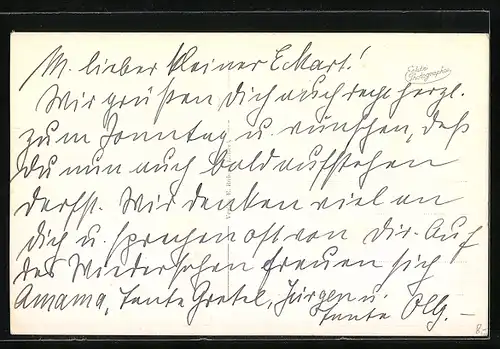 M. lieber kleiner Eckart!
Echte Photographie
Wir grüßen Dich auch recht herzl.
zum Sonntag u. wünschen, daß
du nun auch bald aufstehen
darfst. Wir denken viel an
dich u. sprechen oft von Dir. Auf
das Wiedersehen freuen sich
Amama, Tante Gretel, Jürgen u.
Tante Olly. –
8.-